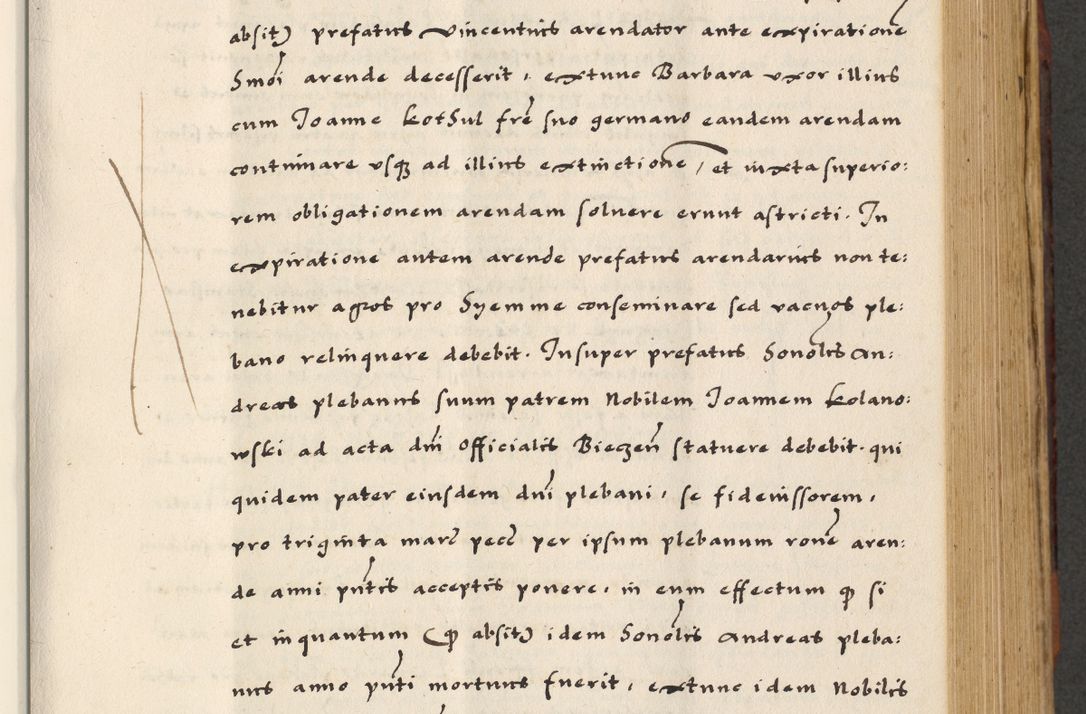 absit) prefatus Vincentius arendator ante expiratione
Smoi arende decesserit, extunc Barbara uxor illius
cum Joanne Kotsul fre suo germano eandem arendam
continuare usq ad illius extinctione, et iuxta superio:
rem obligationem arendam soluere erunt astricti. In
expiratione autem arende prefatus arendarius non te:
nebitur agros pro Syemme conseminare sed vacuos ple:
bano relinquere debebit. Insuper prefatus Honolis An:
dreas plebanus suum patrem Nobilem Joannem Kolano:
wski ad acta dni Officialis Bieczen statuere debebit. qui
quidem pater eiusdem dni plebani, se fideiussorem,
pro triginta marc pecc per ipsum plebanum rone aren:
de anni pntis acceptis ponere, in eum effectum q si
et inquantum (q absit) idem Honolis Andreas pleba:
nus anno pnti mortuus fuerit, extunc idem Nobilis